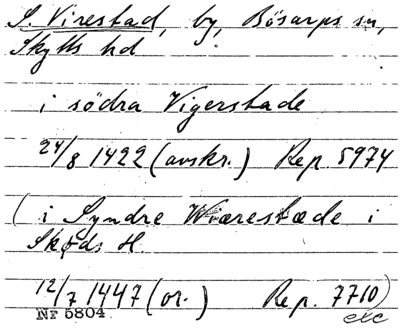 S. Virestad, by, Bösarps sn,
Skytts hd
i södra Vigerstade
24/8 1422 (avskr.) Rep. 5974
(i Syndre Wiærestæde i
Skøds H.
12/7 1447 (or.) Rep. 7710)
Nr 5804 etc